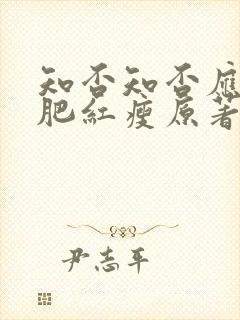 知否知否應
肥紅瘦原著
尹志平